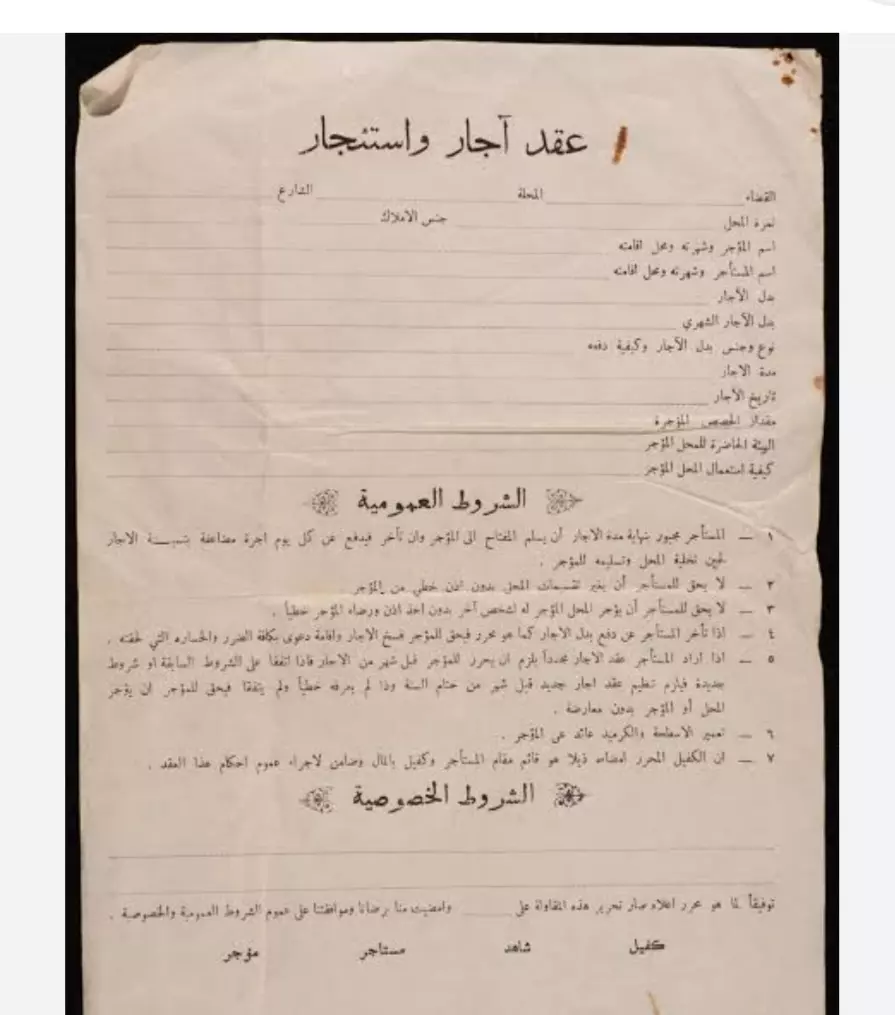 عقد آجار واستئجار
القضاء المحلة الشارع
نمرة المحل جنس الاملاك
اسم المؤجر وشهرته ومحل اقامته
اسم المستأجر وشهرته ومحل اقامته
بدل الآجار
بدل الآجار الشهري
نوع وجنس بدل الآجار وكيفية دفعه
مدة الاجار
تاريخ الآجار
مقدار الحصص المؤجرة
الهيئة الحاضرة للمحل المؤجر
كيفية استعمال المحل المؤجر
الشروط العمومية
١ — المستأجر مجبور بنهاية مدة الاجار أن يسلم المفتاح الى المؤجر وان تأخر فيدفع عن كل يوم اجرة مضاعفة بنسبة الاجار
لحين تخلية المحل وتسليمه للمؤجر .
٢ — لا يحق للمستأجر أن يغير تقسيمات المحل بدون اذن خطي من المؤجر
٣ — لا يحق للمستأجر أن يؤجر المحل المؤجر له لشخص آخر بدون اخذ اذن ورضاء المؤجر خطياً .
٤ — اذا تأخر المستأجر عن دفع بدل الاجار كما هو محرر فيحق للمؤجر فسخ الاجار واقامة دعوى بكافة الضرر والخساره التي لحقته .
٥ — اذا اراد المستأجر عقد الاجار مجدداً يلزم ان يحرر للمؤجر قبل شهر من الاجار فاذا اتفقا على الشروط السابقة او شروط
جديدة فيلزم تنظيم عقد اجار جديد قبل شهر من ختام السنة وذا لم يعرفه خطياً ولم يتفقا فيحق للمؤجر ان يؤجر
المحل أو المؤجر بدون معارضة .
٦ — تعمير الاسطحة والكرميد عائد عى المؤجر .
٧ — ان الكفيل المحرر امضاه ذيلا هو قائم مقام المستأجر وكفيل بالمال وضامن لاجراء عموم احكام هذا العقد .
الشروط الخصوصية
توفيقاً لما هو محرر اعلاه صار تحرير هذه المقاولة على وامضيت منا برضانا وموافقتنا على عموم الشروط العمومية والخصوصية .
كفيل شاهد مستاجر مؤجر